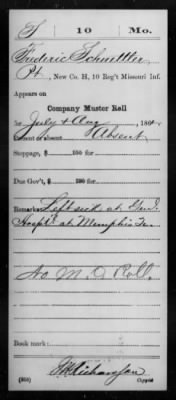 S | 10 | Mo.
Frederic Schmittler
Pt., New Co. H, 10 Reg't Missouri Inf.
Appears on
Company Muster Roll
for July & Aug, 186
Present or absent Absent
Stoppage, $ 100 for
Due Gov't, $ 100 for
Remarks: Left sick at Gen'l
Hospt. at Memphis Ten
No M. O. Roll.
Book mark:
Richardson
(858) Copyist.